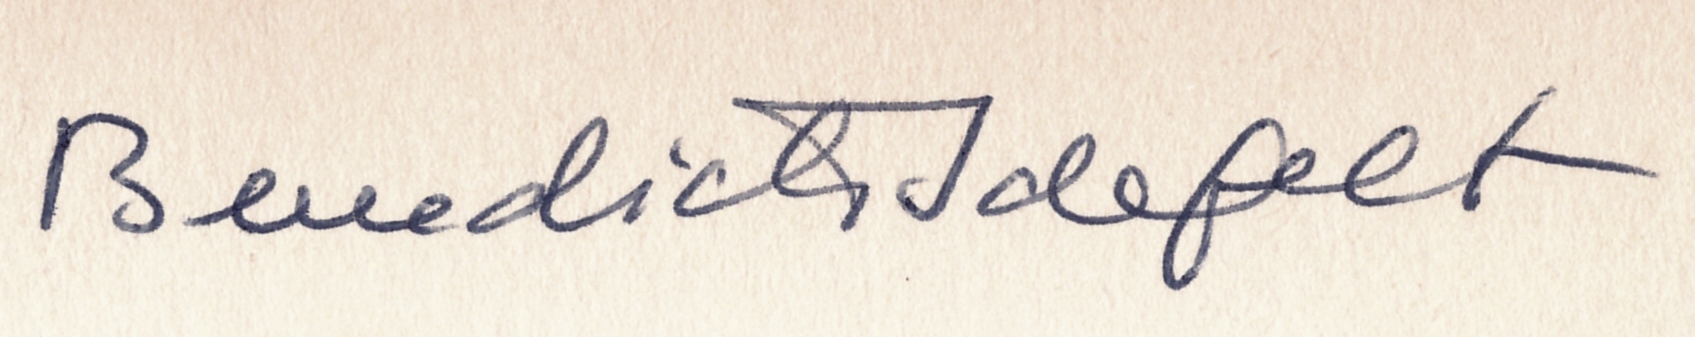 Benedicta Idefelt